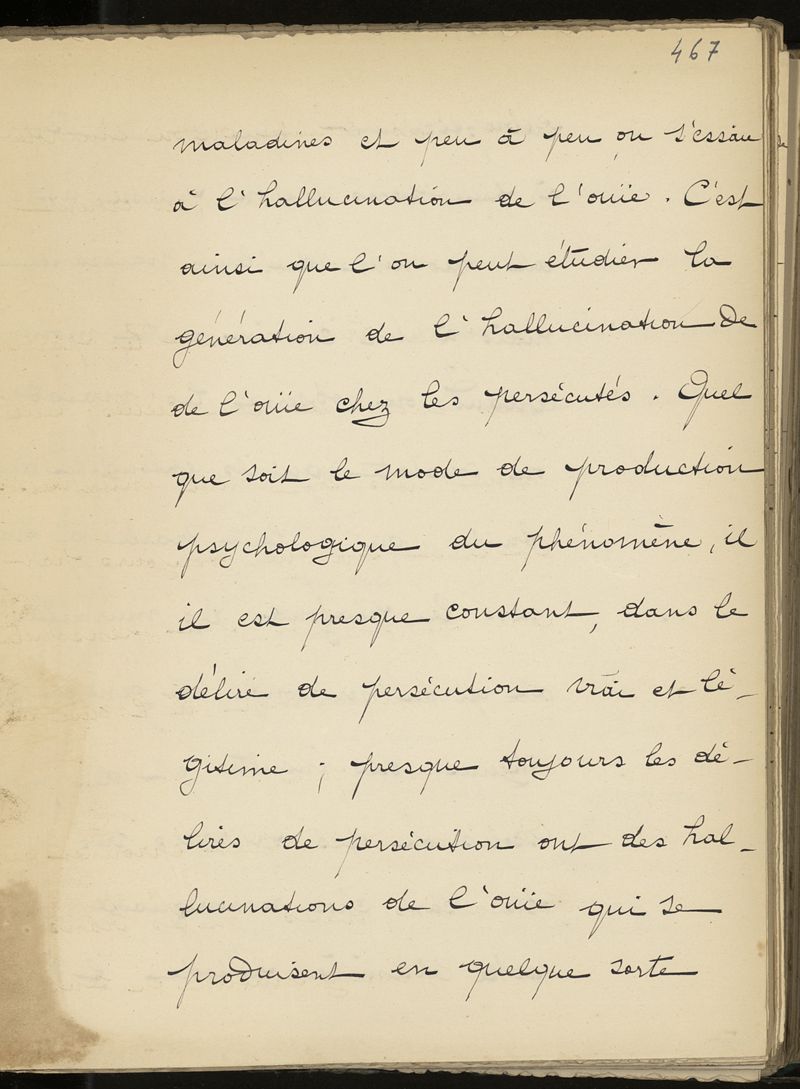 467
maladives et peu à peu on s'essaie
à l'hallucination de l'ouïe. C'est
ainsi que l'on peut étudier la
génération de l'hallucination de
de l'ouïe chez les persécutés. Quel
que soit le mode de production
psychologique du phénomène, il
il est presque constant, dans le
délire de persécution vrai et lé-
gitime ; presque toujours les dé-
lirés de persécution ont des hal-
lucinations de l'ouïe qui se
produisent en quelque sorte